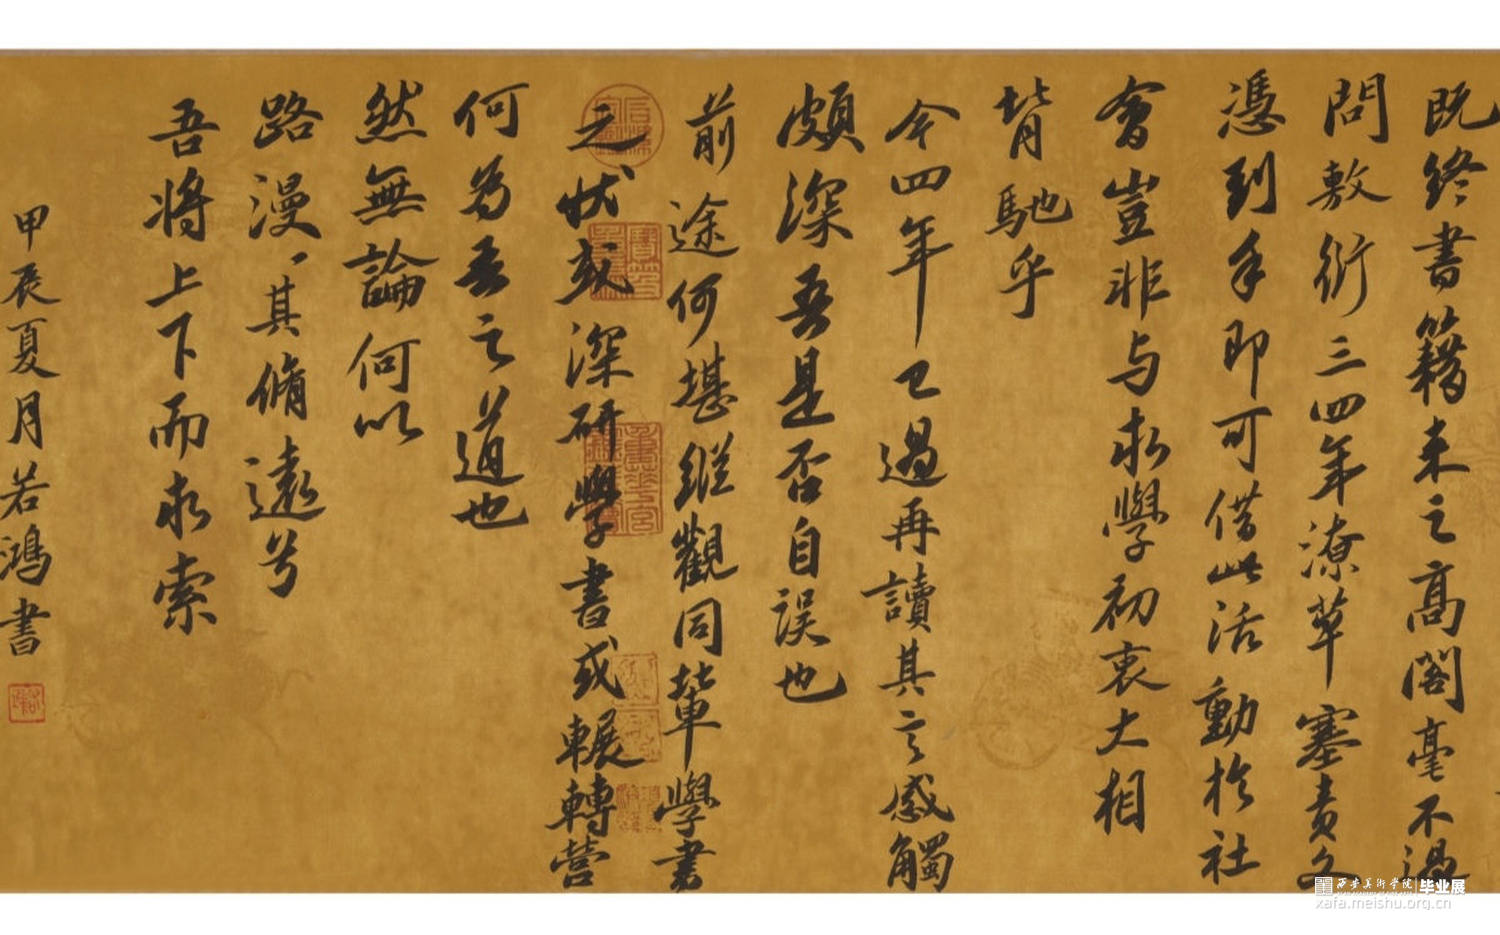 既終書籍束之高閣毫不過
問敷衍三四年潦草塞責文
憑到手即可借此活動於社
會豈非与求學初衷大相
背馳乎
今四年已過再讀其言感觸
頗深吾是否自误也
前途何堪縱觀同輩學書
之狀或深研學書或輾轉營
何為吾之道也
然無論何以
路漫、其脩遠兮
吾将上下而求索
甲辰夏月若鴻書
西安美術學院 毕业展
xafa.meishu.org.cn